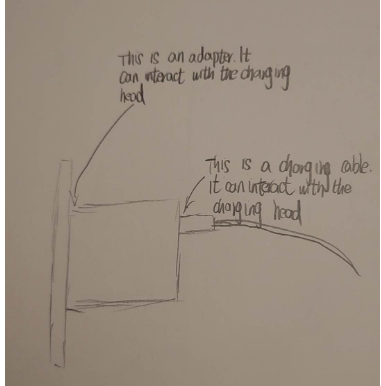 This is an adapter. It
can interact with the charging
head
This is a charging cable.
It can interact with the
charging head